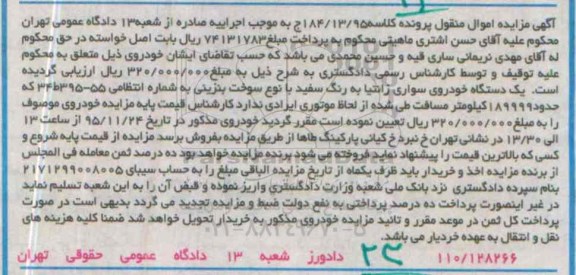 آگهی مزایده اموال منقول پرونده کلاسه۱۸۴/۱۳/۹۵ج به موجب اجراییه صادره از شعبه۱۳ دادگاه عمومی تهران
محکوم علیه آقای حسن اشتری ماهینی محکوم به پرداخت مبلغ۷۴۱۳۱۷۸۳ ریال بابت اصل خواسته در حق محکوم
له آقای مهدی نریمانی ساری قیه و حسین محمدی می باشد که حسب تقاضای ایشان خودروی ذیل متعلق به محکوم
علیه توقیف و توسط کارشناس رسمی دادگستری به شرح ذیل به مبلغ۳۲۰/۰۰۰/۰۰۰ ریال ارزیابی گردیده
است. یک دستگاه خودروی سواری زانتیا به رنگ سفید با نوع سوخت بنزینی به شماره انتظامی ۵۵-۳۴ب۳۹۵ که
حدود۱۸۹۹۹۹کیلومتر مسافت طی شده از لحاظ موتوری ایرادی ندارد کارشناس قیمت پایه مزایده خودروی موصوف
را به مبلغ۳۲۰/۰۰۰/۰۰۰ ریال تعیین نموده است مقرر گردید خودروی مذکور در تاریخ ۹۵/۱۱/۲۴ از ساعت ۱۳
الی ۱۳/۳۰ در نشانی تهران خ نبرد خ کیانی پارکینگ طاها از طریق مزایده بفروش برسد مزایده از قیمت پایه شروع و
کسی که بالاترین قیمت را پیشنهاد نماید فروخته می شود برنده مزایده خواهد بود ده درصد ثمن معامله فی المجلس
از برنده مزایده اخذ و خریدار باید ظرف یکماه از تاریخ مزایده الباقی مبلغ را به حساب سیبای ۲۱۷۱۲۹۹۰۰۸۰۰۵
بنام سپرده دادگستری نزد بانک ملی شعبه وزارت دادگستری واریز نموده و قبض آن را به این شعبه تسلیم نماید
در غیر اینصورت پرداخت ده درصد پرداختی به نفع دولت ضبط و مزایده تجدید می گردد بدیهی است در صورت
پرداخت کل ثمن در موعد مقرر و تائید مزایده خودروی مذکور به خریدار تحویل خواهد شد ضمنا کلیه هزینه های
نقل و انتقال به عهده خریدار می باشد.
۱۱۰/۱۲۸۲۶۶ دادورز شعبه ۱۳ دادگاه عمومی حقوقی تهران